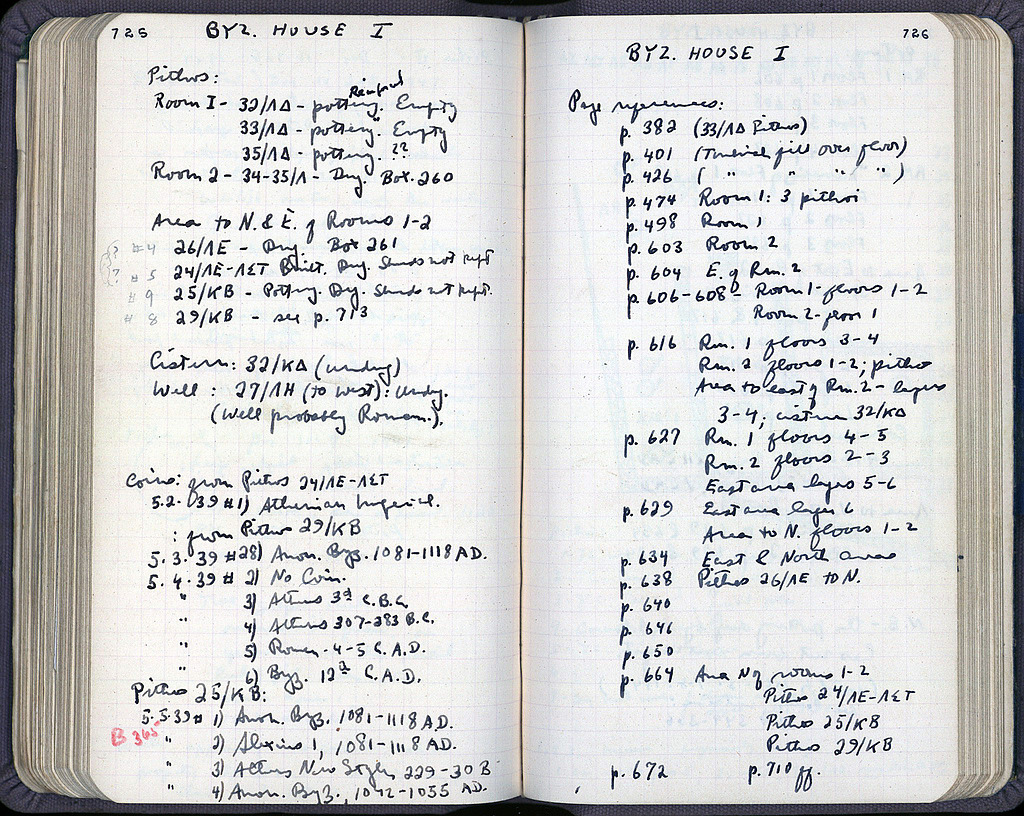 725 BYZ. HOUSE I
Pithos:
Reinforced
Room I - 32/ΛΔ - pottery. Empty
33/ΛΔ - pottery. Empty
35/ΛΔ - pottery. ??
Room 2 - 34-35/Λ - Byz. Box 260
Area to N. & E. of Rooms 1-2
? #4 26/ΛΕ - Byz. Box 261
? #5 24/ΛΕ-ΛΣΤ Built. Byz. Sherds not kept
#9 25/ΚΒ - Pottery. Byz. Sherds not kept.
#8 29/ΚΒ - see p. 713
Cistern: 32/ΚΔ (undug)
Well: 27/ΛΗ (to west): Undug.
(Well probably Roman.).
Coins: from Pithos 24/ΛΕ-ΛΣΤ
5.2.39 #1) Athenian Imperial.
: from Pithos 29/ΚΒ
5.3.39 #28) Anon. Byz. 1081-1118 AD.
5.4.39 # 2) No Coin.
" 3) Athens 3rd C.B.C.
" 4) Athens 307-283 B.C.
" 5) Roman - 4-5 C. A.D.
" 6) Byz. 12th C. A.D.
Pithos 25/ΚΒ:
5.5.39 # 1) Anon. Byz. 1081-1118 AD.
B 365
" 2) Alexius 1, 1081-1118 AD.
" 3) Athens New Style, 229-30 B
" 4) Anon. Byz., 1042-1055 AD.
726
BYZ. HOUSE I
Page references:
p. 382 (33/ΛΔ Pithos)
p. 401 (Turkish fill over floor)
p. 426 ( " " " " )
p. 474 Room 1: 3 pithoi
p. 498 Room 1
p. 603 Room 2
p. 604 E. of Rm. 2
p. 606-608 - Room 1 - floors 1-2
Room 2 - floor 1
p. 616 Rm. 1 floors 3-4
Rm. 2 floors 1-2; pithos
Area to east of Rm. 2 - layers
3-4; cistern 32/ΚΔ
p. 627 Rm. 1 floors 4-5
Rm. 2 floors 2-3
East area layers 5-6
p. 629 East area layer 6
Area to N. floors 1-2
p. 634 East & North areas
p. 638 Pithos 26/ΛΕ to N.
p. 640
p. 646
p. 650
p. 664 Area N of rooms 1-2
Pithos 24/ΛΕ-ΛΣΤ
Pithos 25/ΚΒ
Pithos 29/ΚΒ
p. 672 p. 710 ff.